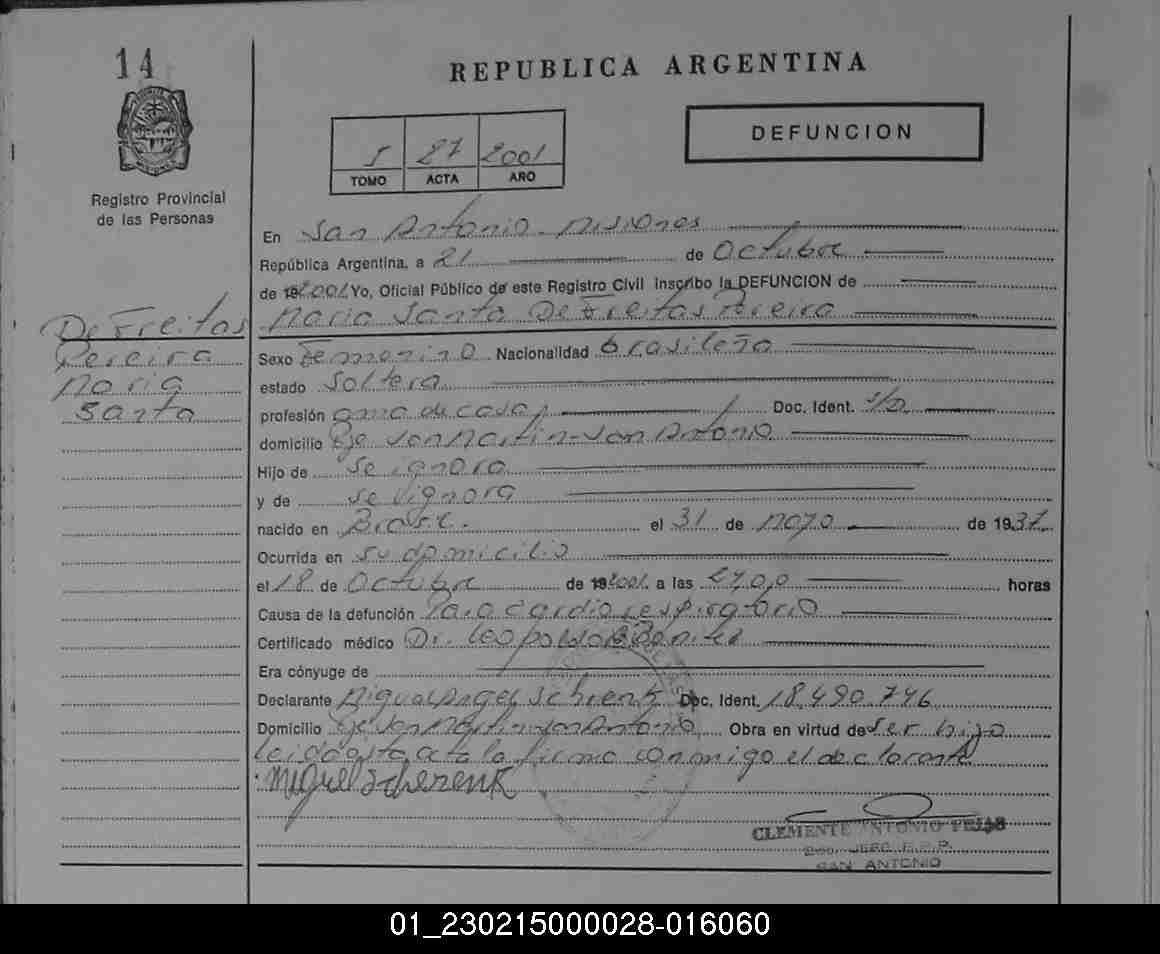 14
REPUBLICA ARGENTINA
DEFUNCION
I 27 2001
TOMO ACTA AÑO
Registro Provincial
de las Personas
En San Antonio - Misiones
República Argentina, a 21 de Octubre
de 19 2001 Yo, Oficial Público de este Registro Civil inscribo la DEFUNCION de
Maria Santa De Freitas Pereira
De Freitas
Pereira
Maria
Santa
Sexo Femenino Nacionalidad brasileña
estado Soltera
profesión ama de casa Doc. Ident. s/d
domicilio San Martin - San Antonio
Hijo de se ignora
y de se ignora
nacido en Brasil. el 31 de Mayo de 1937
Ocurrida en su domicilio
el 18 de Octubre de 19 2001 a las horas
Causa de la defunción Paro cardio respiratorio
Certificado médico Dr. Leopoldo Benitez
Era cónyuge de
Declarante Miguel Angel Schrenk Doc. Ident. 18.490.746
Domicilio San Martin - San Antonio Obra en virtud de ser hijo
leida esta acta la firma conmigo el declarante
Miguel Scherenk
CLEMENTE ANTONIO
SAN ANTONIO
01_230215000028-016060